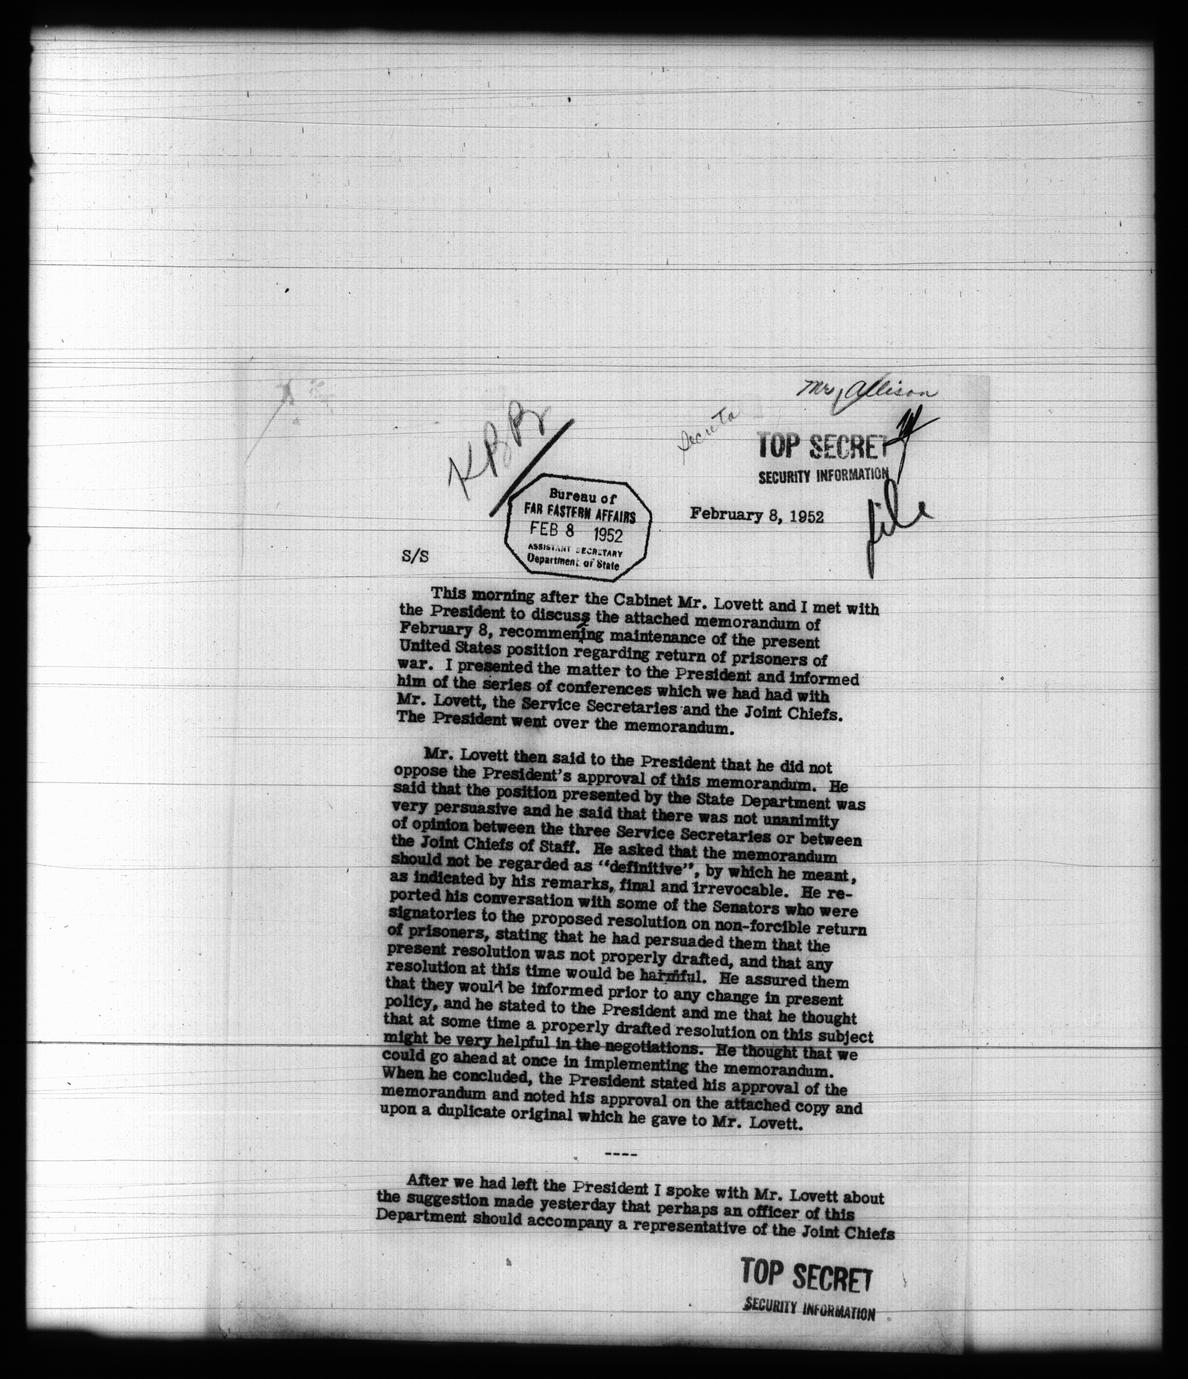 Mr. Allison
TOP SECRET
SECURITY INFORMATION
file
Bureau of
FAR EASTERN AFFAIRS
FEB 8 1952
ASSISTANT SECRETARY
Department of State
February 8, 1952
S/S
This morning after the Cabinet Mr. Lovett and I met with
the President to discuss the attached memorandum of
February 8, recommening maintenance of the present
United States position regarding return of prisoners of
war. I presented the matter to the President and informed
him of the series of conferences which we had had with
Mr. Lovett, the Service Secretaries and the Joint Chiefs.
The President went over the memorandum.
Mr. Lovett then said to the President that he did not
oppose the President's approval of this memorandum. He
said that the position presented by the State Department was
very persuasive and he said that there was not unanimity
of opinion between the three Service Secretaries or between
the Joint Chiefs of Staff. He asked that the memorandum
should not be regarded as "definitive", by which he meant,
as indicated by his remarks, final and irrevocable. He re-
ported his conversation with some of the Senators who were
signatories to the proposed resolution on non-forcible return
of prisoners, stating that he had persuaded them that the
present resolution was not properly drafted, and that any
resolution at this time would be harmful. He assured them
that they would be informed prior to any change in present
policy, and he stated to the President and me that he thought
that at some time a properly drafted resolution on this subject
might be very helpful in the negotiations. He thought that we
could go ahead at once in implementing the memorandum.
When he concluded, the President stated his approval of the
memorandum and noted his approval on the attached copy and
upon a duplicate original which he gave to Mr. Lovett.
----
After we had left the President I spoke with Mr. Lovett about
the suggestion made yesterday that perhaps an officer of this
Department should accompany a representative of the Joint Chiefs
TOP SECRET
SECURITY INFORMATION